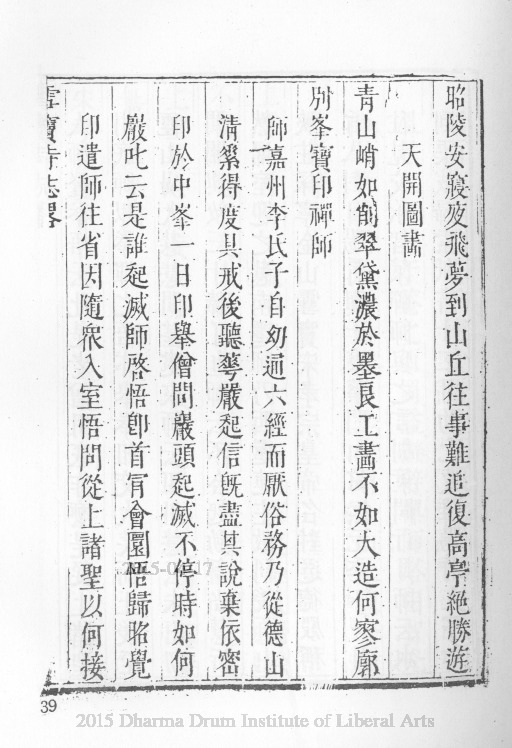 昭陵安寢夜飛夢到山丘往事難追復高亭絶勝遊
天開圖畵
青山峭如削翠黛濃於墨良工畵不如大造何寥廓
別峯寶印禪師
師嘉州李氏子自㓜通六經而厭俗務乃從德山
清素得度具戒後聽華嚴起信旣盡其說棄依密
印於中峯一日印舉僧問巖頭起滅不停時如何
巖叱云是誰起滅師啓悟卽首肯會圜悟歸昭覺
印遣師往省因隨衆入室悟問從上諸聖以何接
雪竇寺志畧
39
2015 Dharma Drum Institute of Liberal Arts